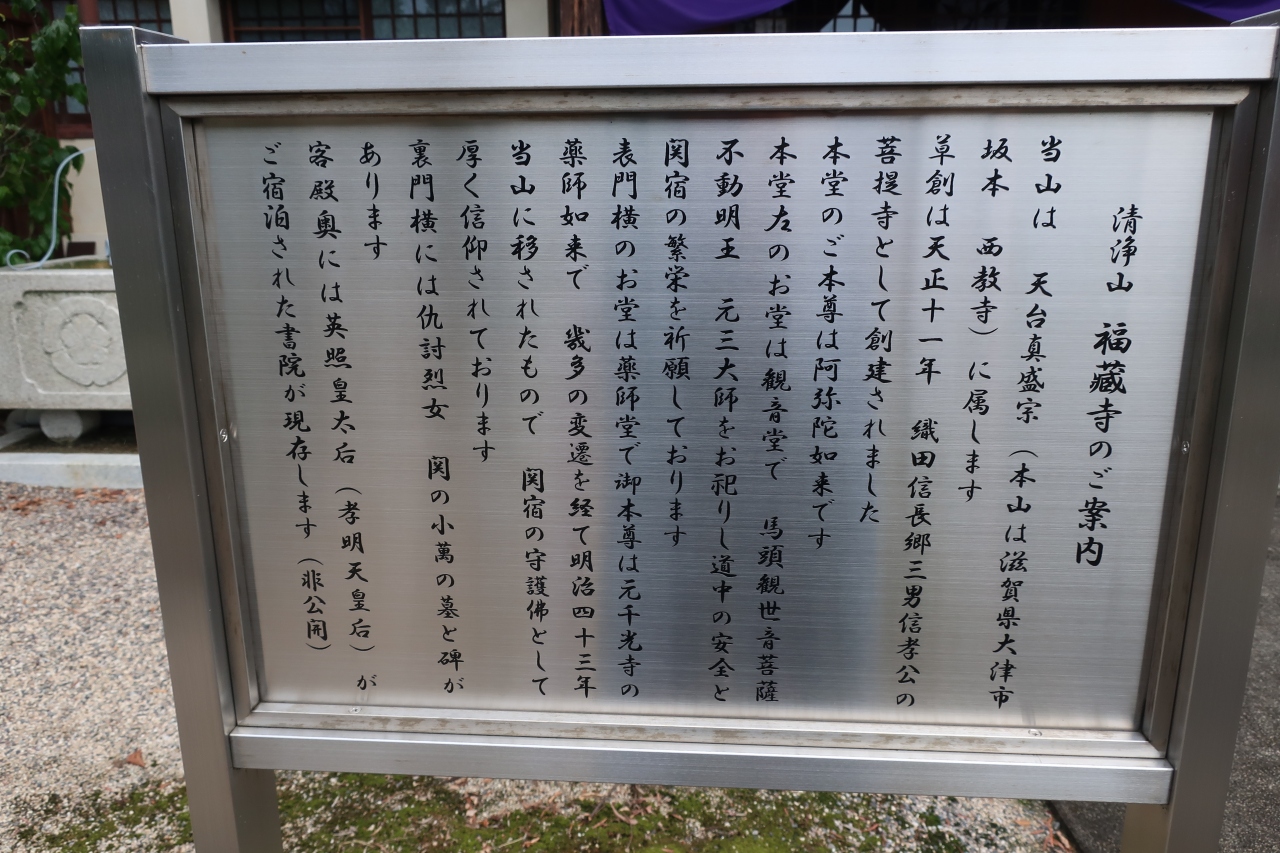 清浄山 福藏寺のご案内
当山は 天台真盛宗(本山は滋賀県大津市
坂本 西教寺)に属します
草創は天正十一年 織田信長郷三男信孝公の
菩提寺として創建されました
本堂のご本尊は阿弥陀如来です
本堂左のお堂は観音堂で 馬頭観世音菩薩
不動明王 元三大師をお祀りし道中の安全と
関宿の繁栄を祈願しております
表門横のお堂は薬師堂で御本尊は元千光寺の
薬師如来で 幾多の変遷を経て明治四十三年
当山に移されたもので 関宿の守護佛として
厚く信仰されております
裏門横には仇討烈女 関の小萬の墓と碑が
あります
客殿奥には英照皇太后(孝明天皇后)が
ご宿泊された書院が現存します(非公開)